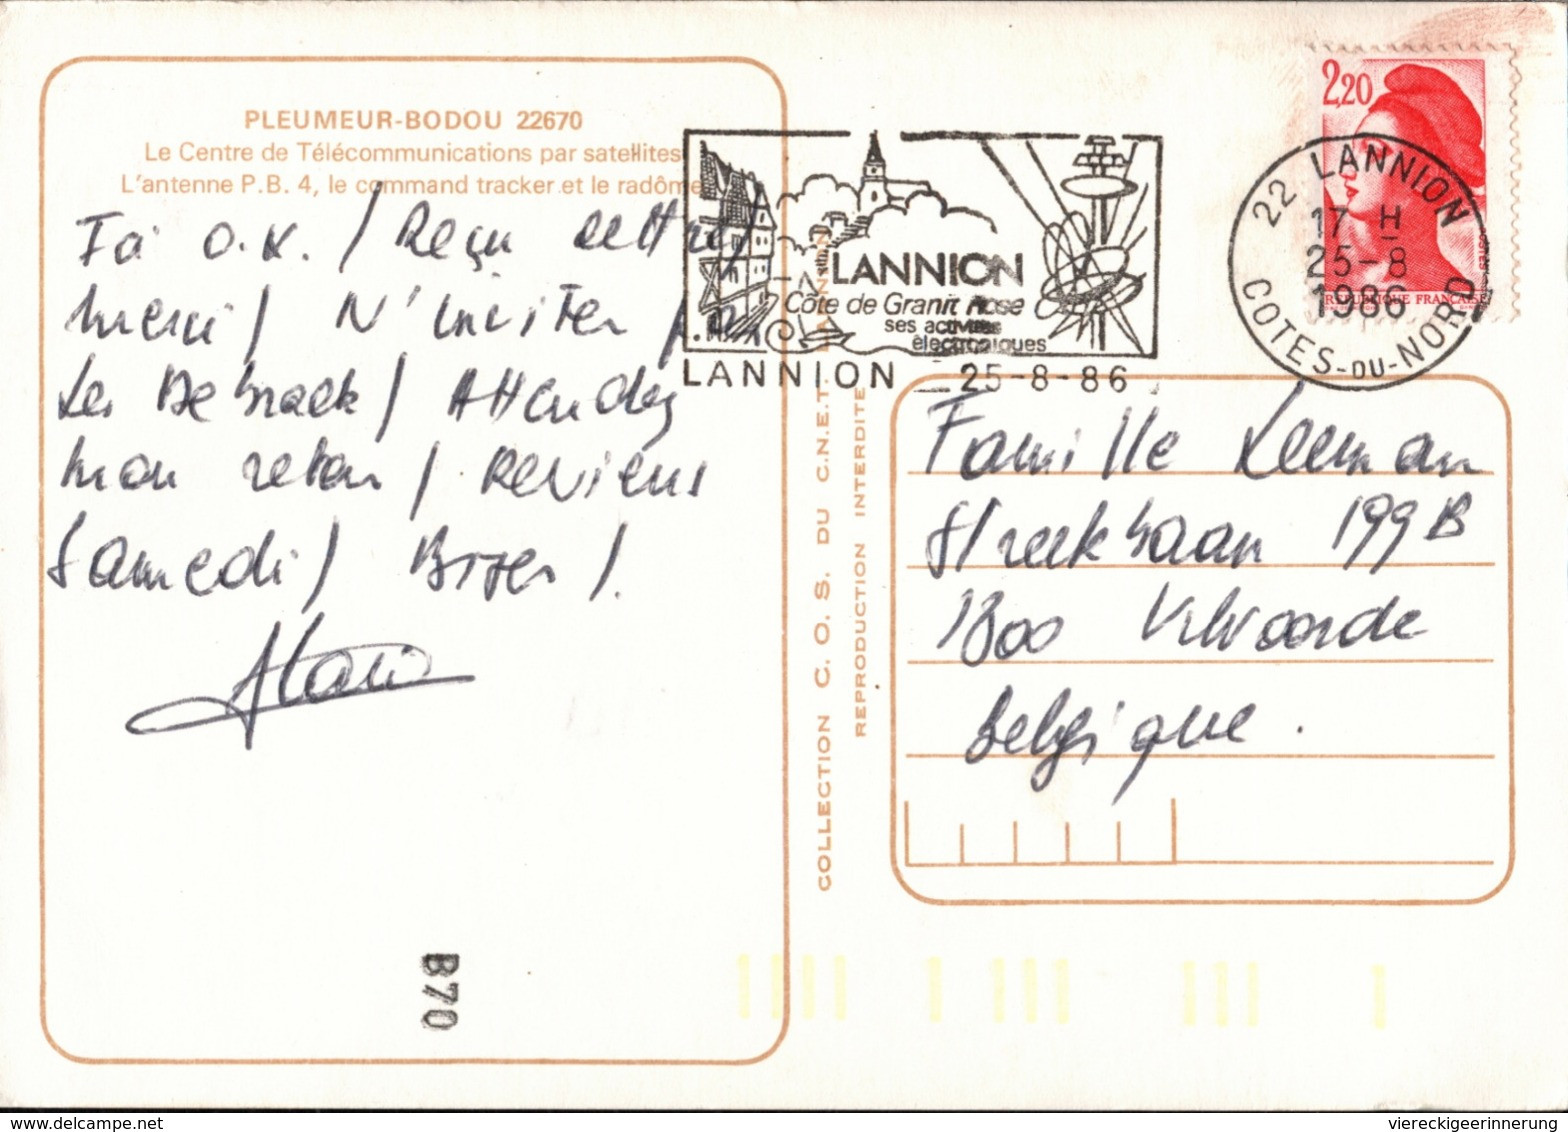 PLEUMEUR-BODOU 22670
Le Centre de Télécommunications par satellites
L'antenne P.B. 4, le command tracker et le radôme
Ici O.K. / Reçu lettre /
merci / N'inviter pas
les / Attendez
mon retour / Reviens
Samedi / Bises /.
Alain
B70
LANNION
Côte de Granit Rose
ses activités
électroniques
LANNION 25-8-86
2,20
REPUBLIQUE FRANÇAISE
22 LANNION
17 H
25-8
1986
COTES-DU-NORD
COLLECTION C.O.S. DU C.N.E.T. LANNION
REPRODUCTION INTERDITE
Famille Leeman
Streekbaan 199 B
1800 Vilvoorde
Belgique.
viereckigeerinnerung